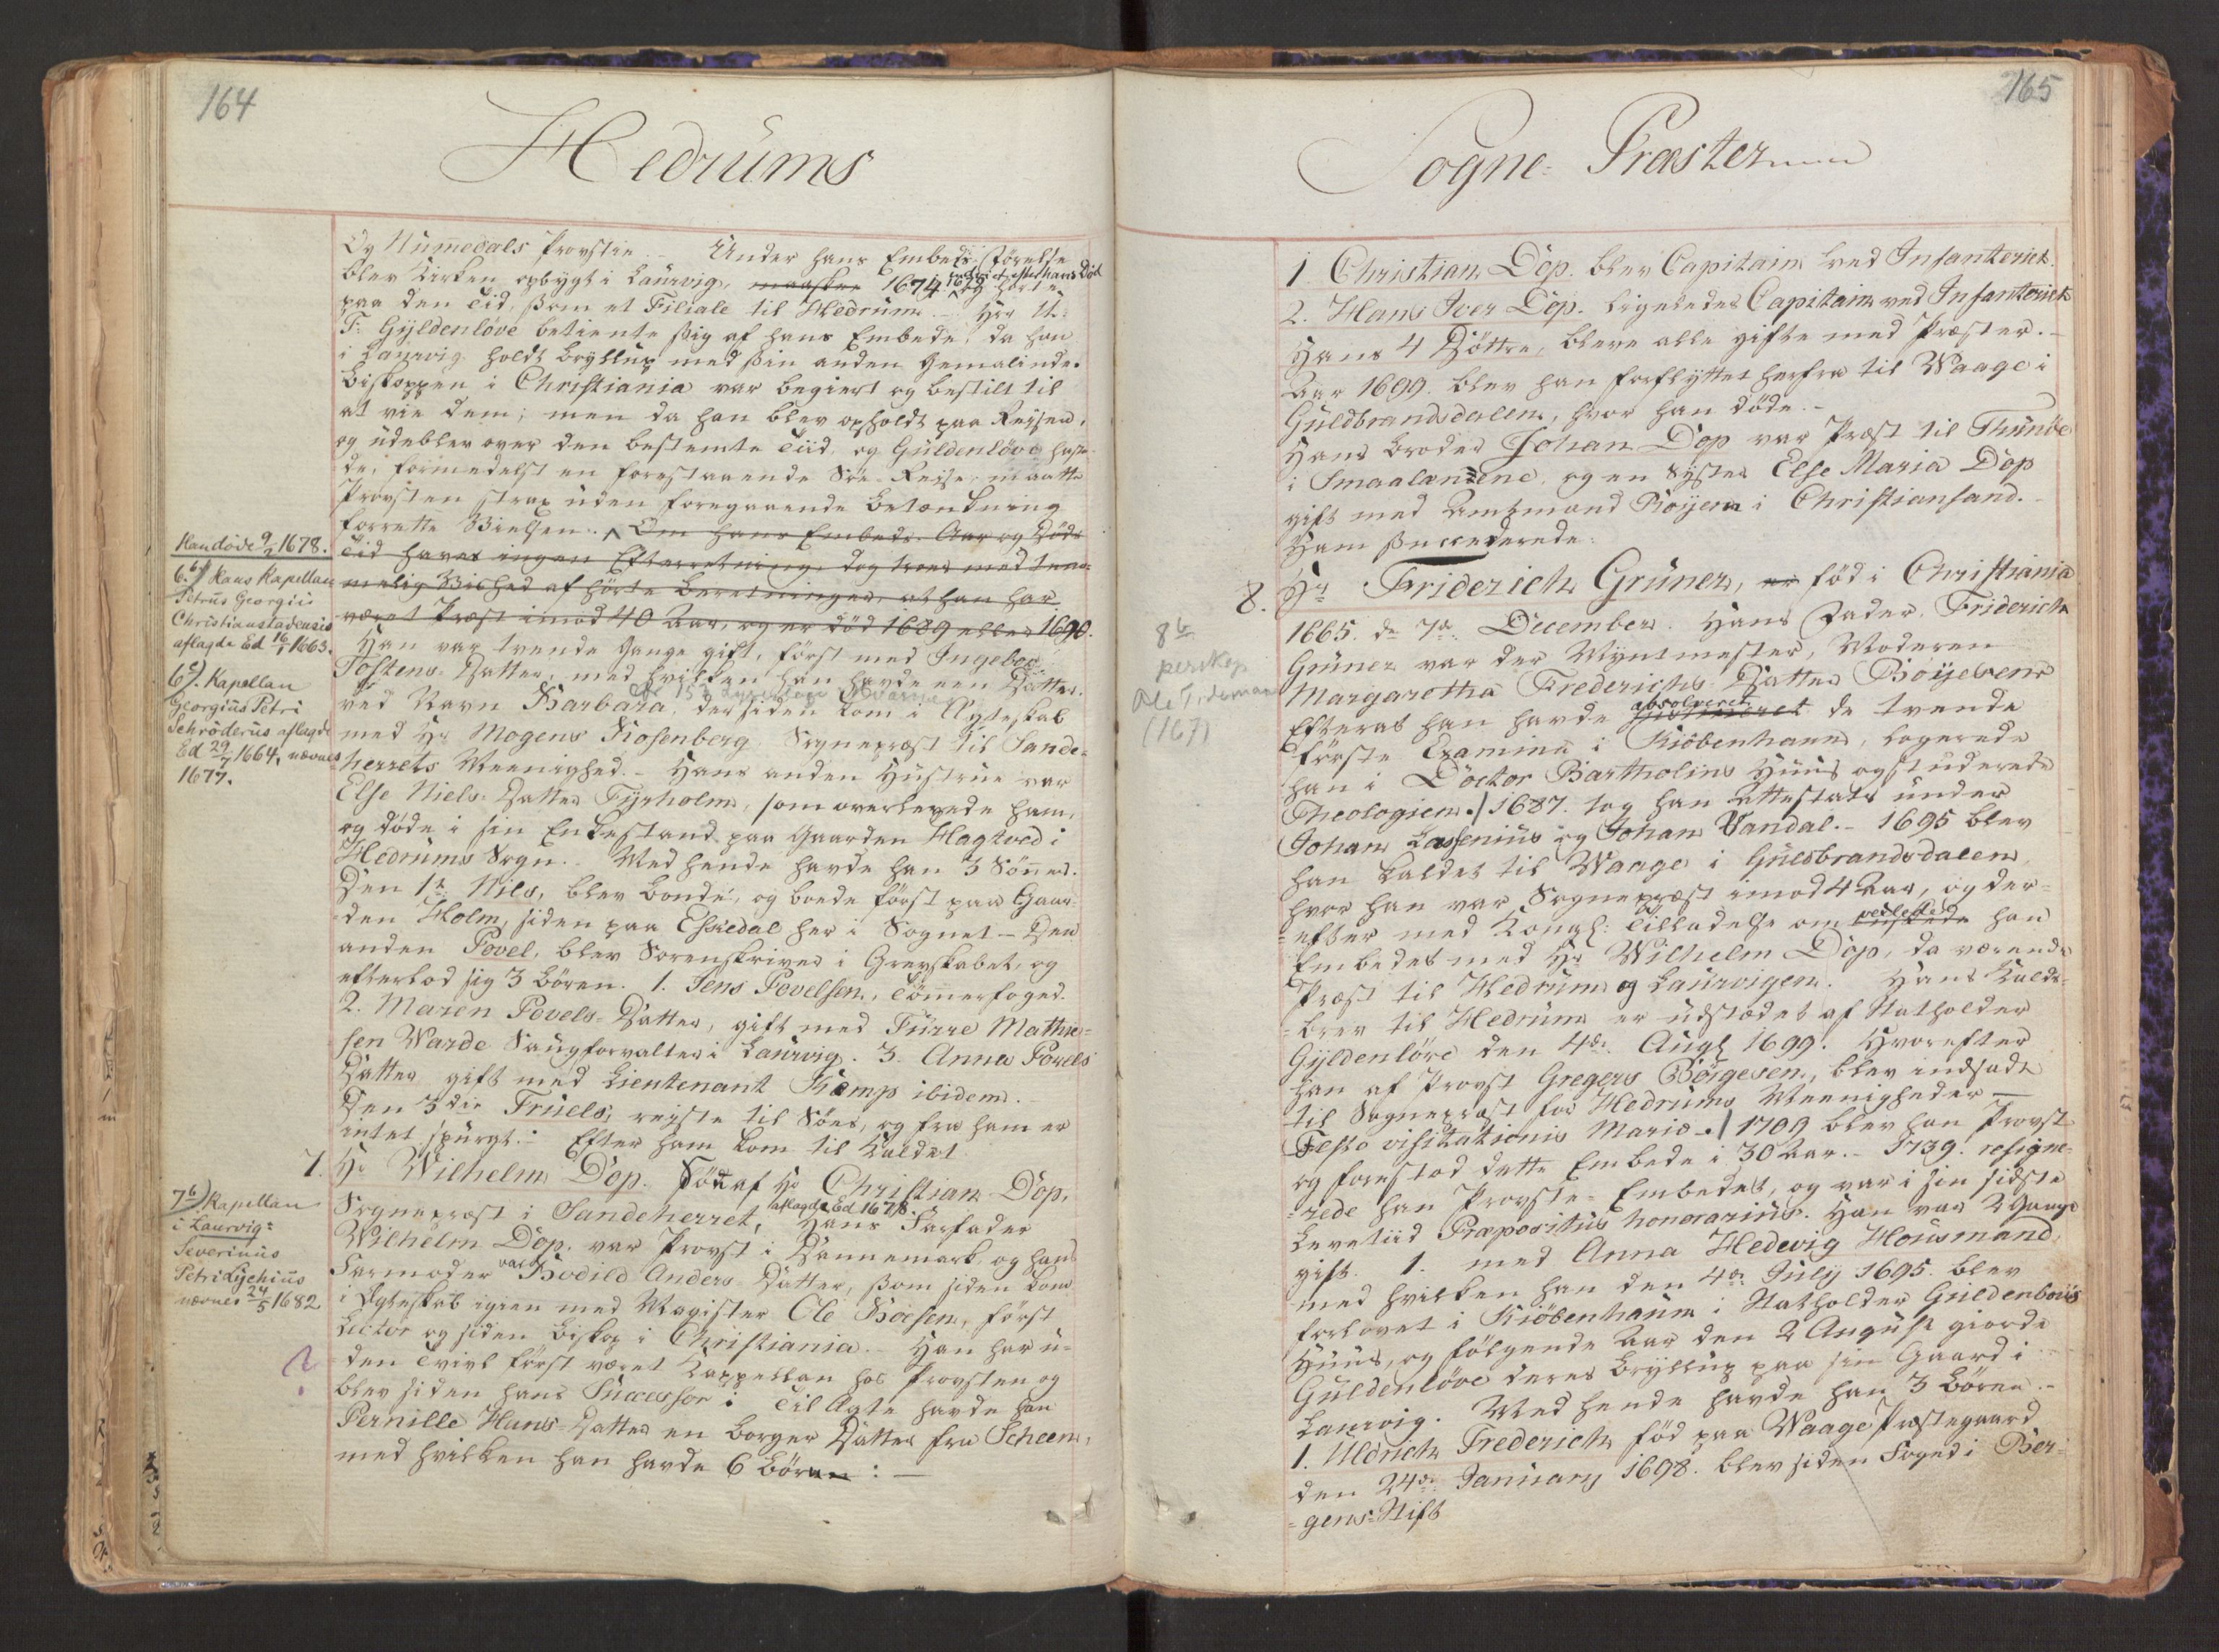 164
Hedrums
Og Numedals Provstie. Under hans Embeds Förelse
blev Kirken opbygt i Laurvig, maaskee 1674. 1677 indviet efter hans Död og hörte
paa den Tid, som et Filiale til Hedrum. Herr U:
F: Gyldenlöve betiente sig af hans Embede, da han
i Laurvig holdt Bryllup med sin anden Gemalinde.
Biskoppen i Christiania var begiert og bestilt til
at vie dem; men da han blev opholdt paa Reysen,
og udeblev over den bestemte Tiid, og Güldenlöve hafte-
de, formedelst en forestaaende Söe-Reise, maatte
Provsten strax uden foregaaende Betænkning
forrette Vielsen. Om hans Embeds Aar og Döds
Tid haves ingen Efterretning. dog troes med tem-
melig Vished af hörte Beretninger, at han har
været Præst imod 40 Aar, og er död 1689 eller 1690.
Han var tvende Gange gift, först med Ingebor
Tostens Datter, med hvilken han havde een Datter.
ved Navn Barbara, der siden kom i Ægteskab
med Hr Mogens Rosenberg Sognepræst til Sande-
herrets Meenighed. Hans anden Hustrue var
Else Niels Datter Fyrholm, som overlevede ham,
og döde i sin Enkestand paa Gaarden Hagtved i
Hedrums Sogn. Med hende havde han 3 Sönner.
Den 1te Nils, blev Bonde, og boede först paa Gaar-
den Holm, siden paa Eskedal her i Sognet - Den
anden Povel, blev Sorenskriver i Grevskabet, og
efterlod sig 3 Börn. 1. Jens Povelsen, Tömerfoged.
2. Maren Povels-Datter, gift med Türre Mathie-
sen Warde Saugforvalter i Laurvig. 3. Anna Povels
Datter gift med Lieutenant Kamp ibidem.
Den 3die Truels, reyste til Söes, og fra ham er
intet spurgt. Efter ham kom til Kaldet
7. Hr Wilhelm Dop. Föd af Hr Christian Dop,
Sognepræst i Sandeherret, aflagde Ed 1678. Hans Farfader
Wilhelm Dop. var Provst i Dannemark, og hans
Farmoder var Bodild Anders Datter, som siden kom
i Ægteskab igien med Magister Ole Boesen, först
Lector og siden Biskop i Christiania. Han har u-
den Tvivl först været Kappellan hos Provsten og
blev siden hans Successor i Til Ægte havde han
Pernille Hans-Datter en Borger Datter fra Scheen,
med hvilken han havde 6 Bören :
Han döde 9/2 1678.
6.b) Hans Kapellan
Petrus Georgii
Christianstadensis
aflagde Ed 16/1 1663.
6c). Kapellan
Georgius Petri
Schröderus aflagde
Ed 29/7 1664, nævnes
1677.
7b) Kapellan
i Laurvig:
Severinus
Petri Lychius
nævnes 24/5 1682
?
165
Sogne-Præster
1. Christian Dop. blev Capitain ved Infanteriet.
2. Hans Iver Dop. ligeledes Capitain ved Infanteriet
Hans 4 Döttre, bleve alle gifte med Præster.
Aar 1699. blev han forflyttet herfra til Waage i
Guldbrandsdalen, hvor han döde.
Hans Broder Johan Dop var Præst til Thunöe
i Smaalænene, og en Syster Else Maria Dop
gift med Amtmand Röyem i Christiansand.
Ham succederede:
8. Hr Friderich Grüner, er föd i Christiania
1665. de 7de December. Hans Fader Friderich
Grüner var der Myntmester, Moderen
Margaretha Frederichs Datter Böyesens
Efterat han havde absolveret de tvende
förste Examina i Kiöbenhavn, logerede
han i Doctor Bartholins Huus og studerede
Theologien. | 1687. tog han Attestats under
Johan Lassenius og Johan Vandal. - 1695 blev
han kaldet til Waage i Guldbrandsdalen,
hvor han var Sognepræst imod 4 Aar, og der-
efter med Kongl: Tilladelse om vexlede han
Embedet med Hr Wilhelm Dop, da værende
Præst til Hedrum og Laurvigen. Hans Kalds-
brev til Hedrum er udstædet af Statholder
Gyldenlöve den 4de Aug 1699. Hvorefter
han af Provst Gregers Börgesen, blev indsadt
til Sognepræst for Hedrums Meenigheder
Festo visitationis Mariæ. | 1709 blev han Provst
og forestod dette Embede i 30 Aar. - 1739. resigne-
rede han Provste-Embedet, og var i sin sidste
Levetiid Præpositus honorarius. Han var 2 Gange
gift. 1. med Anna Hedevig Housmand,
med hvilken han den 4de July 1695. blev
forlovet i Kiöbenhavn i Statholder Güldenlövs
Huus, og fölgende Aar den 2 August giorde
Güldenlöve deres Bryllup paa sin Gaard i
Laurvig. Med hende havde han 3 Bören.
1. Uldrich Frederich föd paa Waage Præstegaard
den 24de January 1698. blev siden Foged i Ber-
gens-Stift
8b
perskap
Ole Tideman
(167)